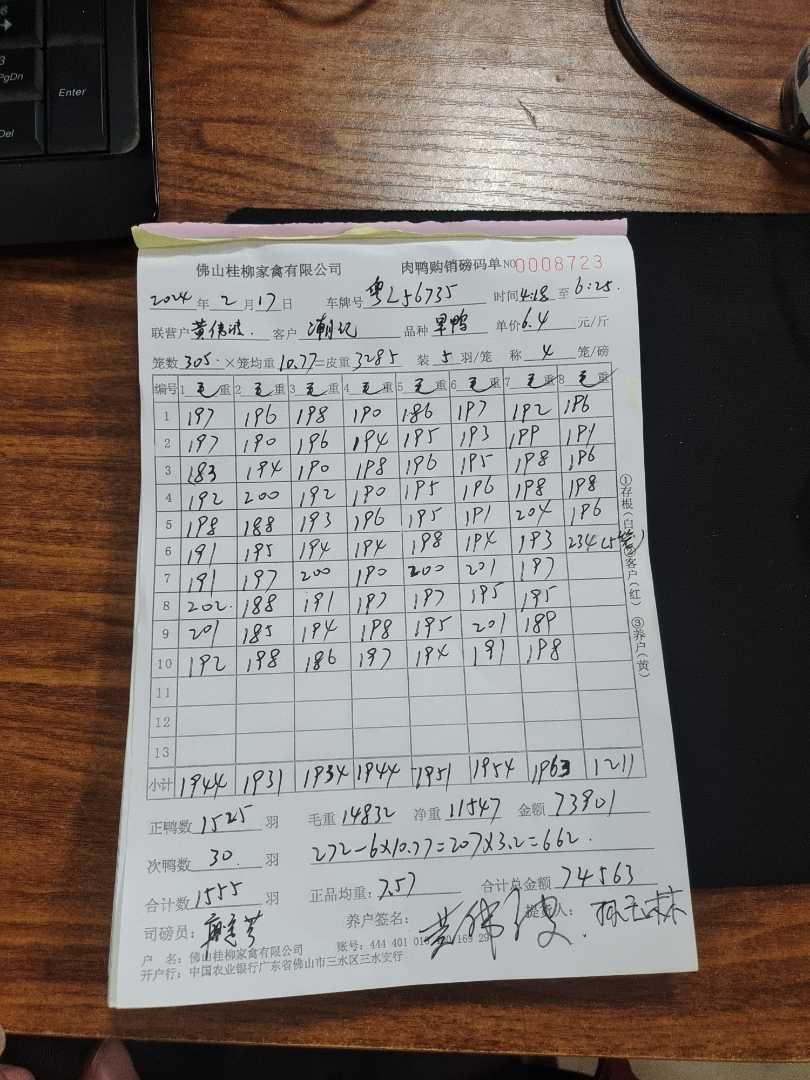 Enter
PgDn
Del
佛山桂柳家禽有限公司 肉鸭购销磅码单 NO 0008723
2024 年 2 月 17 日 车牌号 粤L56735 时间 4:18 至 6:25.
联营户 黄伟波. 客户 潮记 品种 早鸭 单价 6.4 元/斤
笼数 305 ×笼均重 10.77 =皮重 3285 装 5 羽/笼 称 4 笼/磅
编号 1 毛重 2 毛重 3 毛重 4 毛重 5 毛重 6 毛重 7 毛重 8 毛重
1 197 196 198 190 186 197 192 196
2 197 190 196 194 195 193 199 191
3 183 194 190 198 196 195 198 196
4 192 200 192 190 195 196 198 198
5 198 188 193 196 195 191 204 196
6 191 195 194 194 198 194 193 234 (5笼)
7 191 197 200 190 200 201 197
8 202. 188 191 197 197 195 195
9 201 185 194 198 195 201 189
10 192 198 186 197 194 191 198
11
12
13
小计 1944 1931 1934 1944 1951 1954 1963 1211
①存根(白) ②客户(红) ③养户(黄)
正鸭数 1525 羽 毛重 14832 净重 11547 金额 73901
次鸭数 30. 羽 272-6×10.77=207×3.2=662.
合计数 1555 羽 正品均重: 7.57 合计总金额 74563
司磅员: 养户签名: 黄伟波 提货人:
户 名: 佛山桂柳家禽有限公司 账号: 444 401 010
开户行: 中国农业银行广东省佛山市三水区三水支行